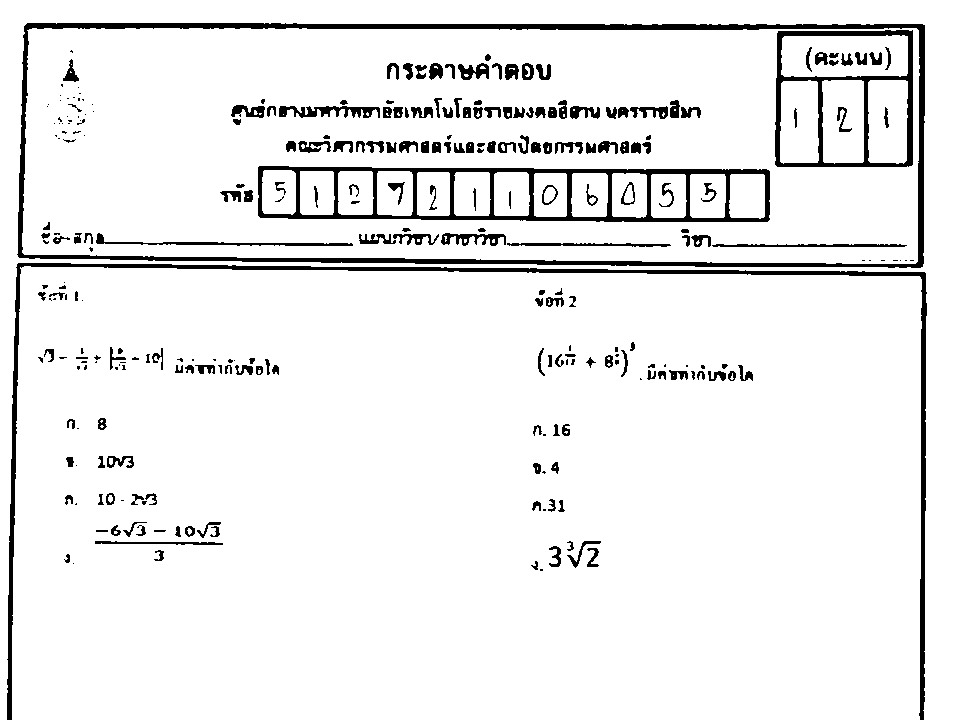 (คะแนน)
กระดาษคำตอบ
1 2 1
ศูนย์กลางมหาวิทยาลัยเทคโนโลยีราชมงคลอีสาน นครราชสีมา
คณะวิศวกรรมศาสตร์และสถาปัตยกรรมศาสตร์
รหัส 5 1 2 7 2 1 1 0 6 0 5 5
ชื่อ-สกุล แผนกวิชา/สาขาวิชา วิชา
ข้อที่ 1.
มีค่าเท่ากับข้อใด
ก. 8
ข. 10√3
ค. 10 - 2√3
ง. (−6√3 − 10√3)/3
ข้อที่ 2
มีค่าเท่ากับข้อใด
ก. 16
ข. 4
ค.31
ง. 3∛2